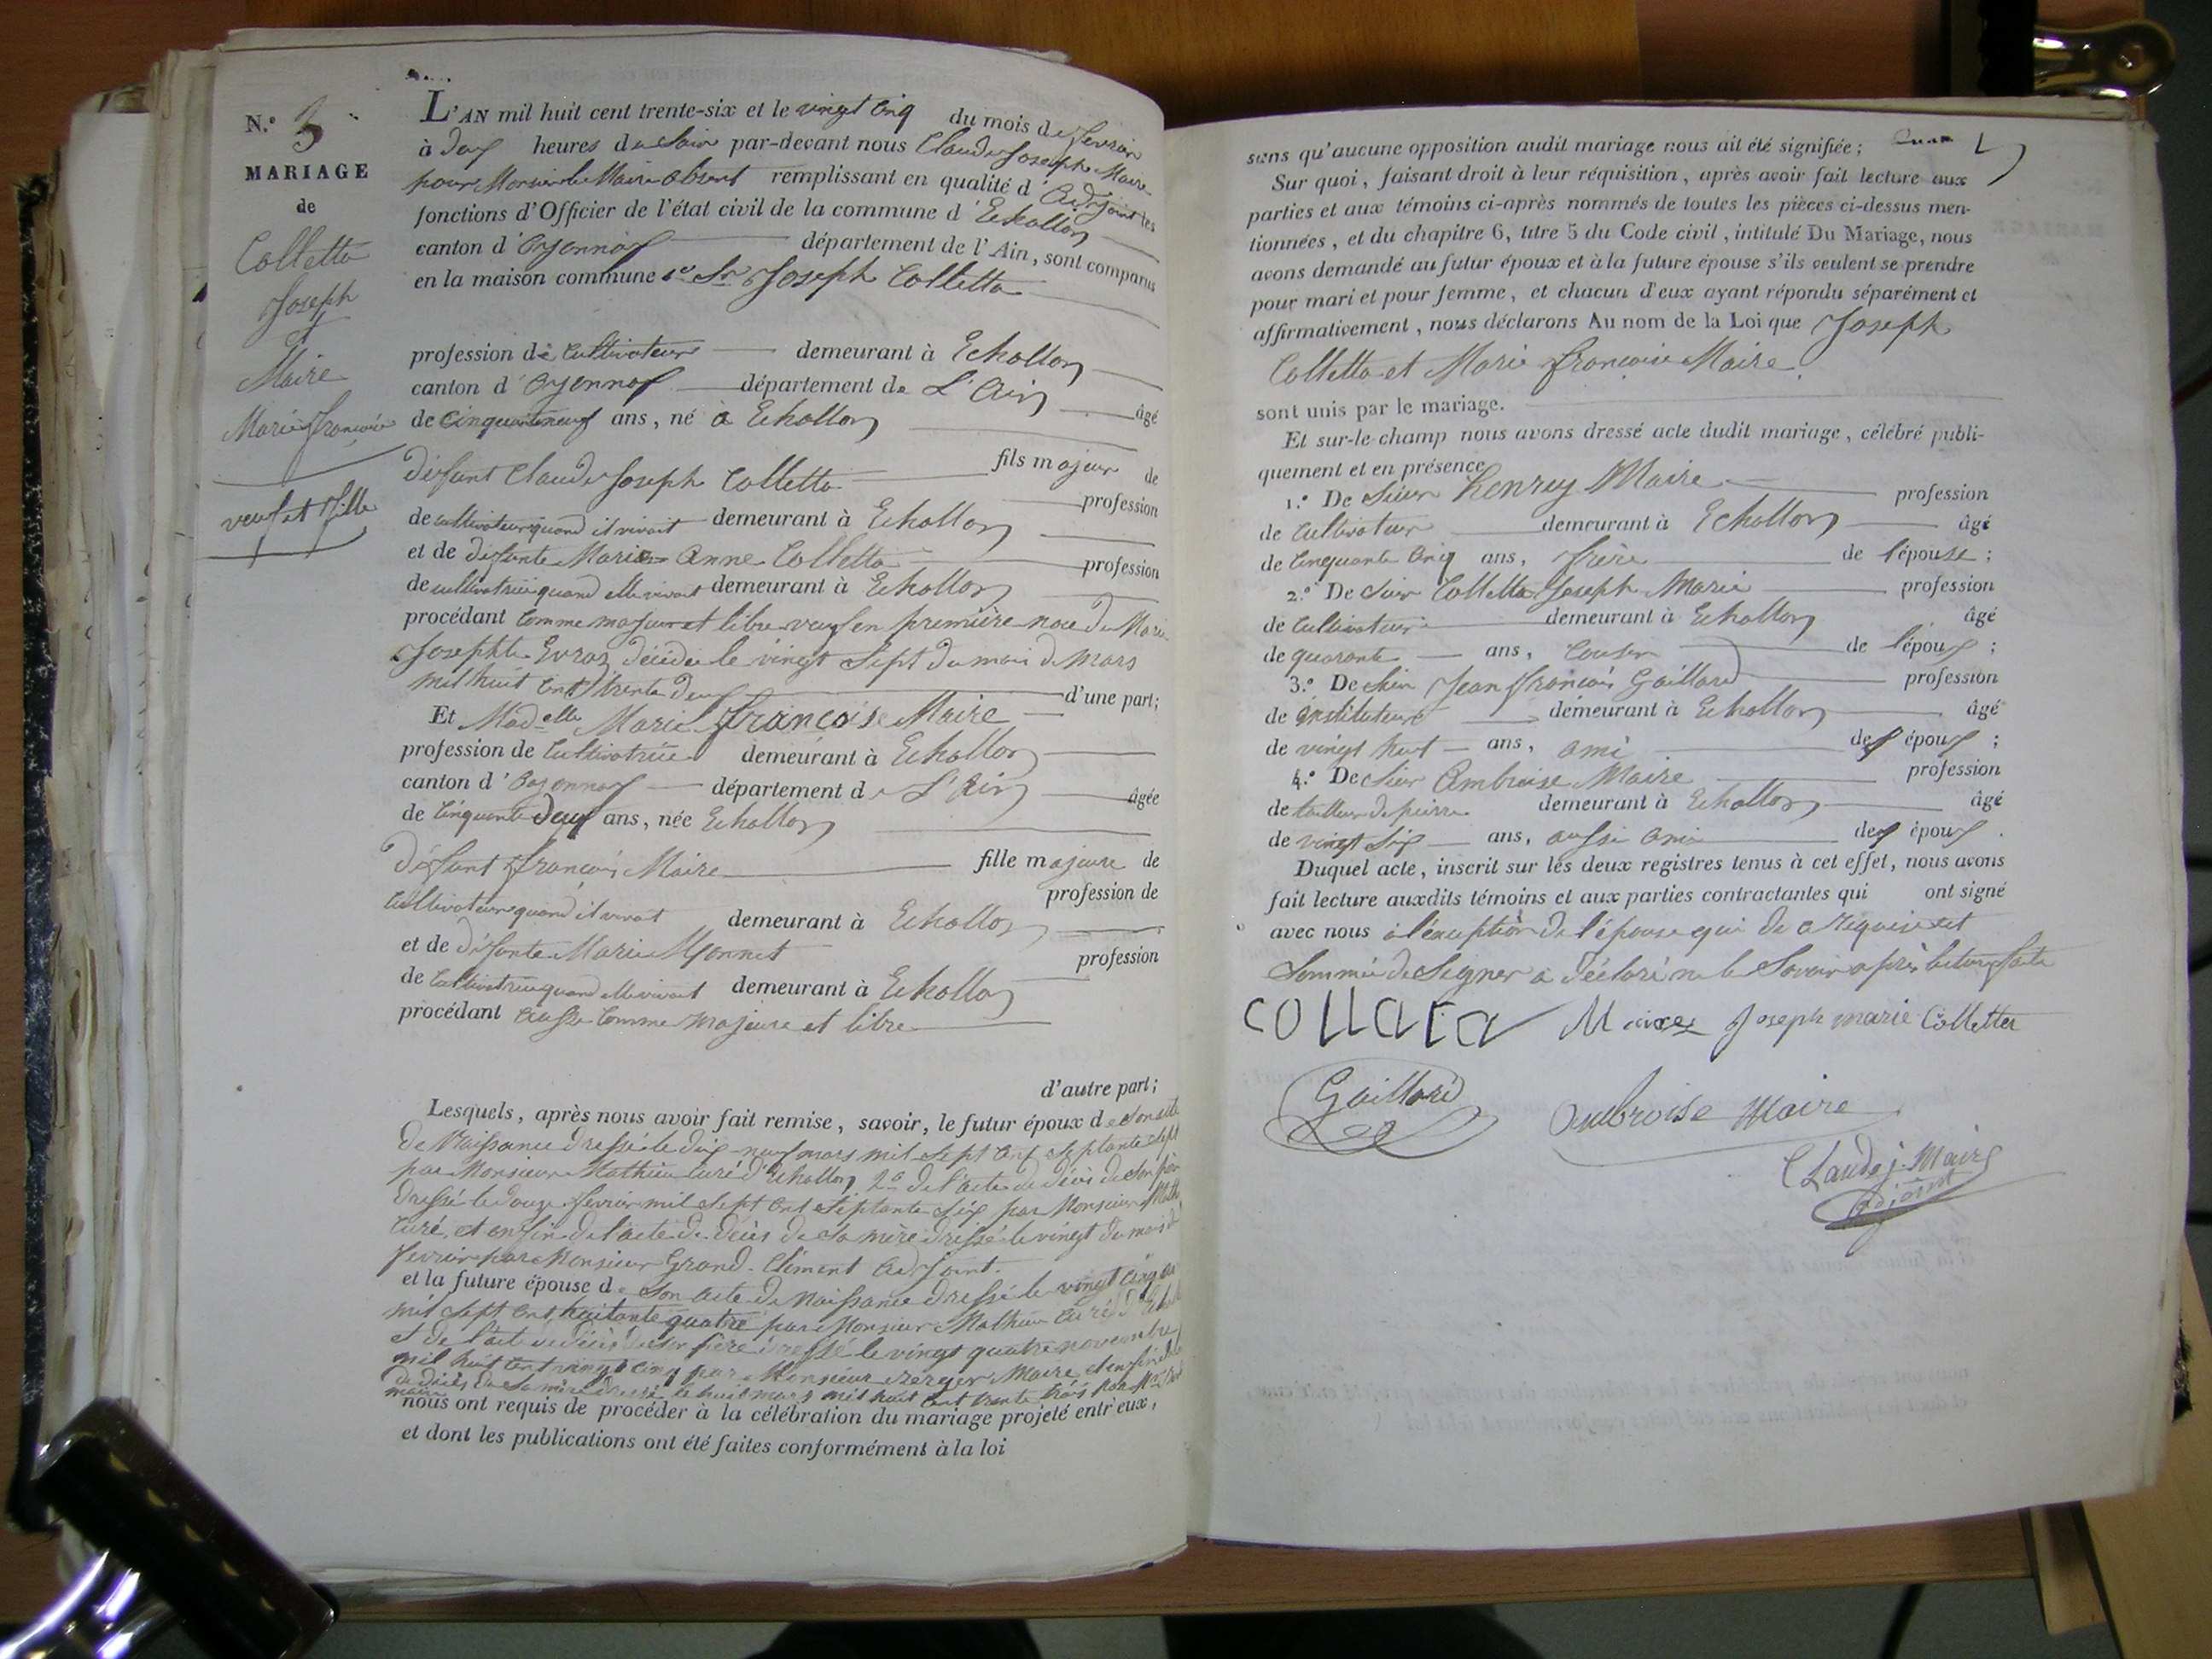 N.º 3
MARIAGE
de
Colletta
Joseph
et
Maire
Marie françoise
veuf et fille
L'AN mil huit cent trente-six et le vingt cinq du mois de fevrier
à deux heures du Soir par-devant nous Claude Joseph Maire
pour Monsieur le Maire absent remplissant en qualité d'Adjoint les
fonctions d'Officier de l'état civil de la commune d'Echallon
canton d'Oyonnax département de l'Ain, sont comparus
en la maison commune 1º Sr Joseph Colletta
profession de Cultivateur demeurant à Echallon
canton d'Oyonnax département de L'Ain âgé
de Cinquante neuf ans, né à Echallon
fils majeur de
défunt Claude Joseph Colletta profession
de cultivateur quand il vivait demeurant à Echallon
et de défunte Marie Anne Colletta profession
de cultivatrice quand elle vivait demeurant à Echallon
procédant comme majeur et libre veuf en première noce de Marie
Josephte Evraz décédée le vingt Sept du mois de Mars
mil huit cent trente deux d'une part;
Et Madelle Marie françoise Maire
profession de Cultivatrice demeurant à Echallon
canton d'Oyonnax département de L'Ain âgée
de Cinquante deux ans, née Echallon
fille majeure de
défunt françois Maire profession de
Cultivateur quand il vivait demeurant à Echallon
et de défunte Marie Monnet profession
de Cultivatrice quand elle vivait demeurant à Echallon
procédant aussi Comme Majeure et libre
d'autre part;
Lesquels, après nous avoir fait remise, savoir, le futur époux de Son acte
de Naissance dressé le dix neuf mars mil Sept cent Septante Sept
par Monsieur Mathieu Curé d'Echallon 2º de l'acte de décès de Son père
dressé le douze fevrier mil Sept cent Septante Six par Monsieur Math
Curé, et enfin de l'acte de décès de Sa mère dressé le vingt du mois de
fevrier par Monsieur Grand-Clément Adjoint.
et la future épouse de Son acte de Naissance dressé le vingt Cinq
mil Sept cent huitante quatre par Monsieur Mathieu Curé d'Echall
et de l'acte de décès de Son père dressé le vingt quatre novembre
mil huit cent vingt cinq par Monsieur Maire, et enfin
de décès de Sa mère dressé le huit mars mil huit cent trente trois par Mr
maire
nous ont requis de procéder à la célébration du mariage projeté entr'eux,
et dont les publications ont été faites conformément à la loi
sans qu'aucune opposition audit mariage nous ait été signifiée;
Sur quoi, faisant droit à leur réquisition, après avoir fait lecture aux
parties et aux témoins ci-après nommés de toutes les pièces ci-dessus men-
tionnées, et du chapitre 6, titre 5 du Code civil, intitulé Du Mariage, nous
avons demandé au futur époux et à la future épouse s'ils veulent se prendre
pour mari et pour femme, et chacun d'eux ayant répondu séparément et
affirmativement, nous déclarons Au nom de la Loi que Joseph
Colletta et Marie françoise Maire
sont unis par le mariage.
Et sur-le-champ nous avons dressé acte dudit mariage, célébré publi-
quement et en présence
1.º De Sieur henrey Maire profession
de Cultivateur demeurant à Echallon âgé
de Cinquante Cinq ans, frère de l'épouse;
2.º De Sieur Colletta Joseph Marie profession
de Cultivateur demeurant à Echallon âgé
de quarante ans, Cousin de l'époux;
3.º De Sieur Jean françois Gaillard profession
de instituteur demeurant à Echallon âgé
de vingt huit ans, ami des époux;
4.º De Sieur Ambroise Maire profession
de tailleur de pierre demeurant à Echallon âgé
de vingt Six ans, aussi ami des époux.
Duquel acte, inscrit sur les deux registres tenus à cet effet, nous avons
fait lecture auxdits témoins et aux parties contractantes qui ont signé
avec nous à l'exception de l'épouse qui de ce requise et
Sommée de Signer a déclaré ne le Savoir après lecture faite
COllaTa Maire Joseph marie Colletta
Gaillard
Ambroise Maire
Claude j. Maire
adjoint